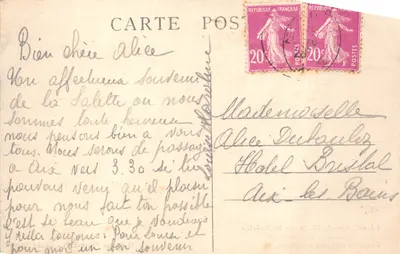 CARTE POS
REPUBLIQUE FRANÇAISE
20c POSTES
REPUBLIQUE FRANÇAISE
20c POSTES
Bien chère Alice
Un affectueux souvenir
de la Salette ou nous
sommes toute heureuse
nous pensons bien a vous
tous. Nous serons de passage
a Aix vers 3.30 si tu
pouvais venir qu'el plaisir
pour nous tout ton possible
c'est si beau que je voudrais
y rester toujours. Pour Louise et
pour moi un bon souvenir
Mademoiselle
Alice
Hotel Bristol
Aix les Bains